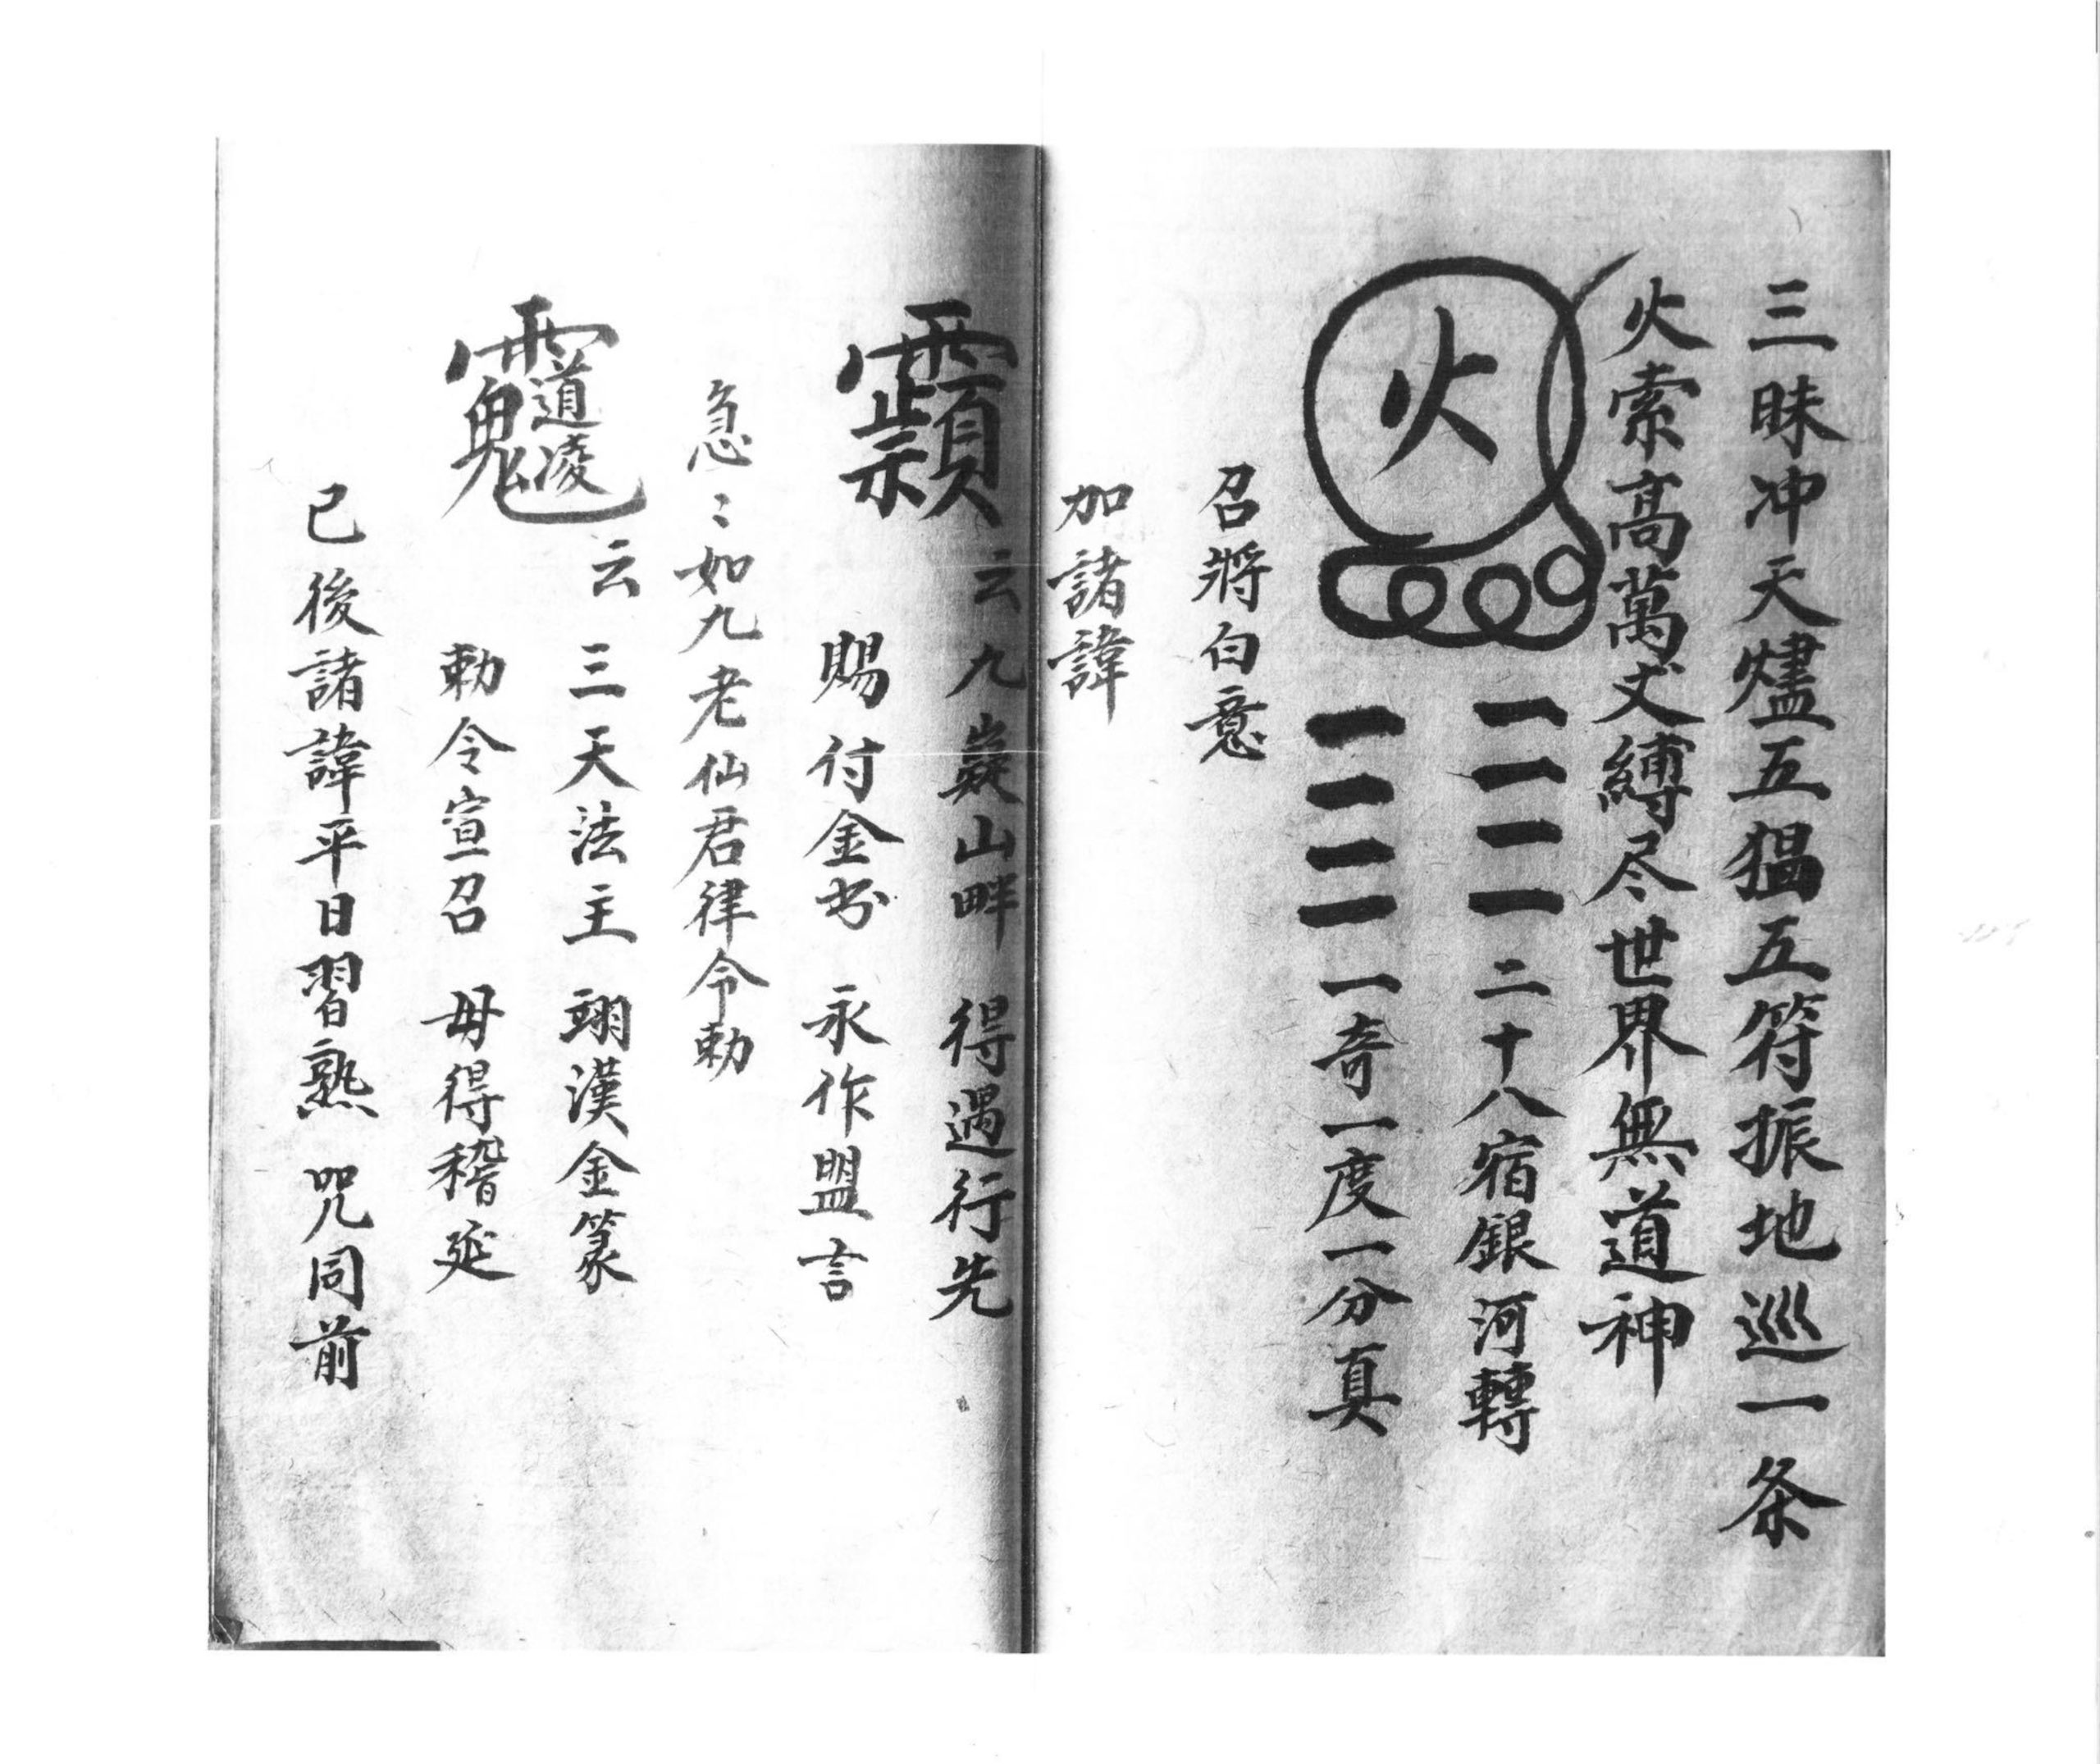 三昧冲天燼五猖五符振地巡一条
火索髙萬丈縛尽世界無道神
火
一一一一二十八宿銀河轉
一一一一一奇一度一分真
召將白意
加諸諱
云九嶷山畔 得遇行先
賜付金书 永作盟言
急〻如九老仙君律令勅
道凌
云 三天法主 翊漢金篆
勅令宣召 毋得稽延
已後諸諱平日習熟 咒同前